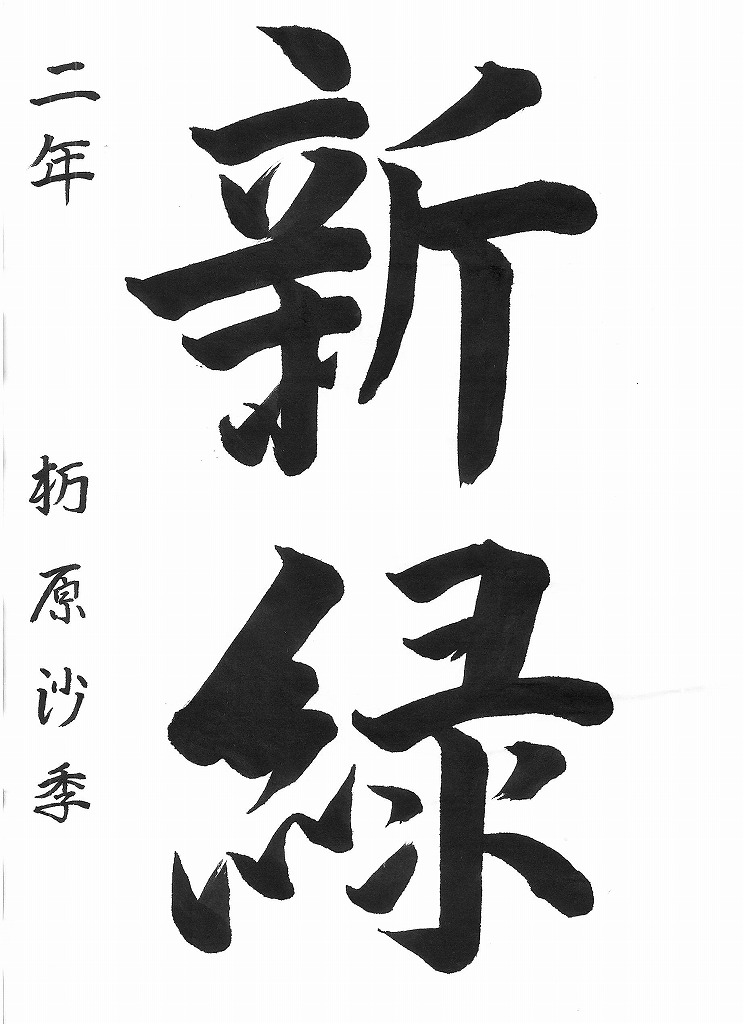 新緑
二年 栃原沙季